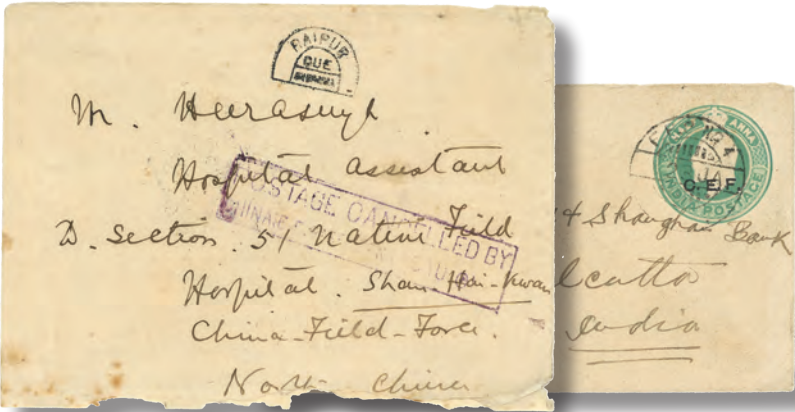 RAIPUR
DUE
M. Heerasingh
Hospital Assistant
POSTAGE CANCELLED BY
D. Section. 51 Native Field
Hospital. Shan-Hai-Kwan
China-Field-Force.
North China
ANNA
INDIA POSTAGE
C.E.F.
& Shanghai Bank
Calcutta
India